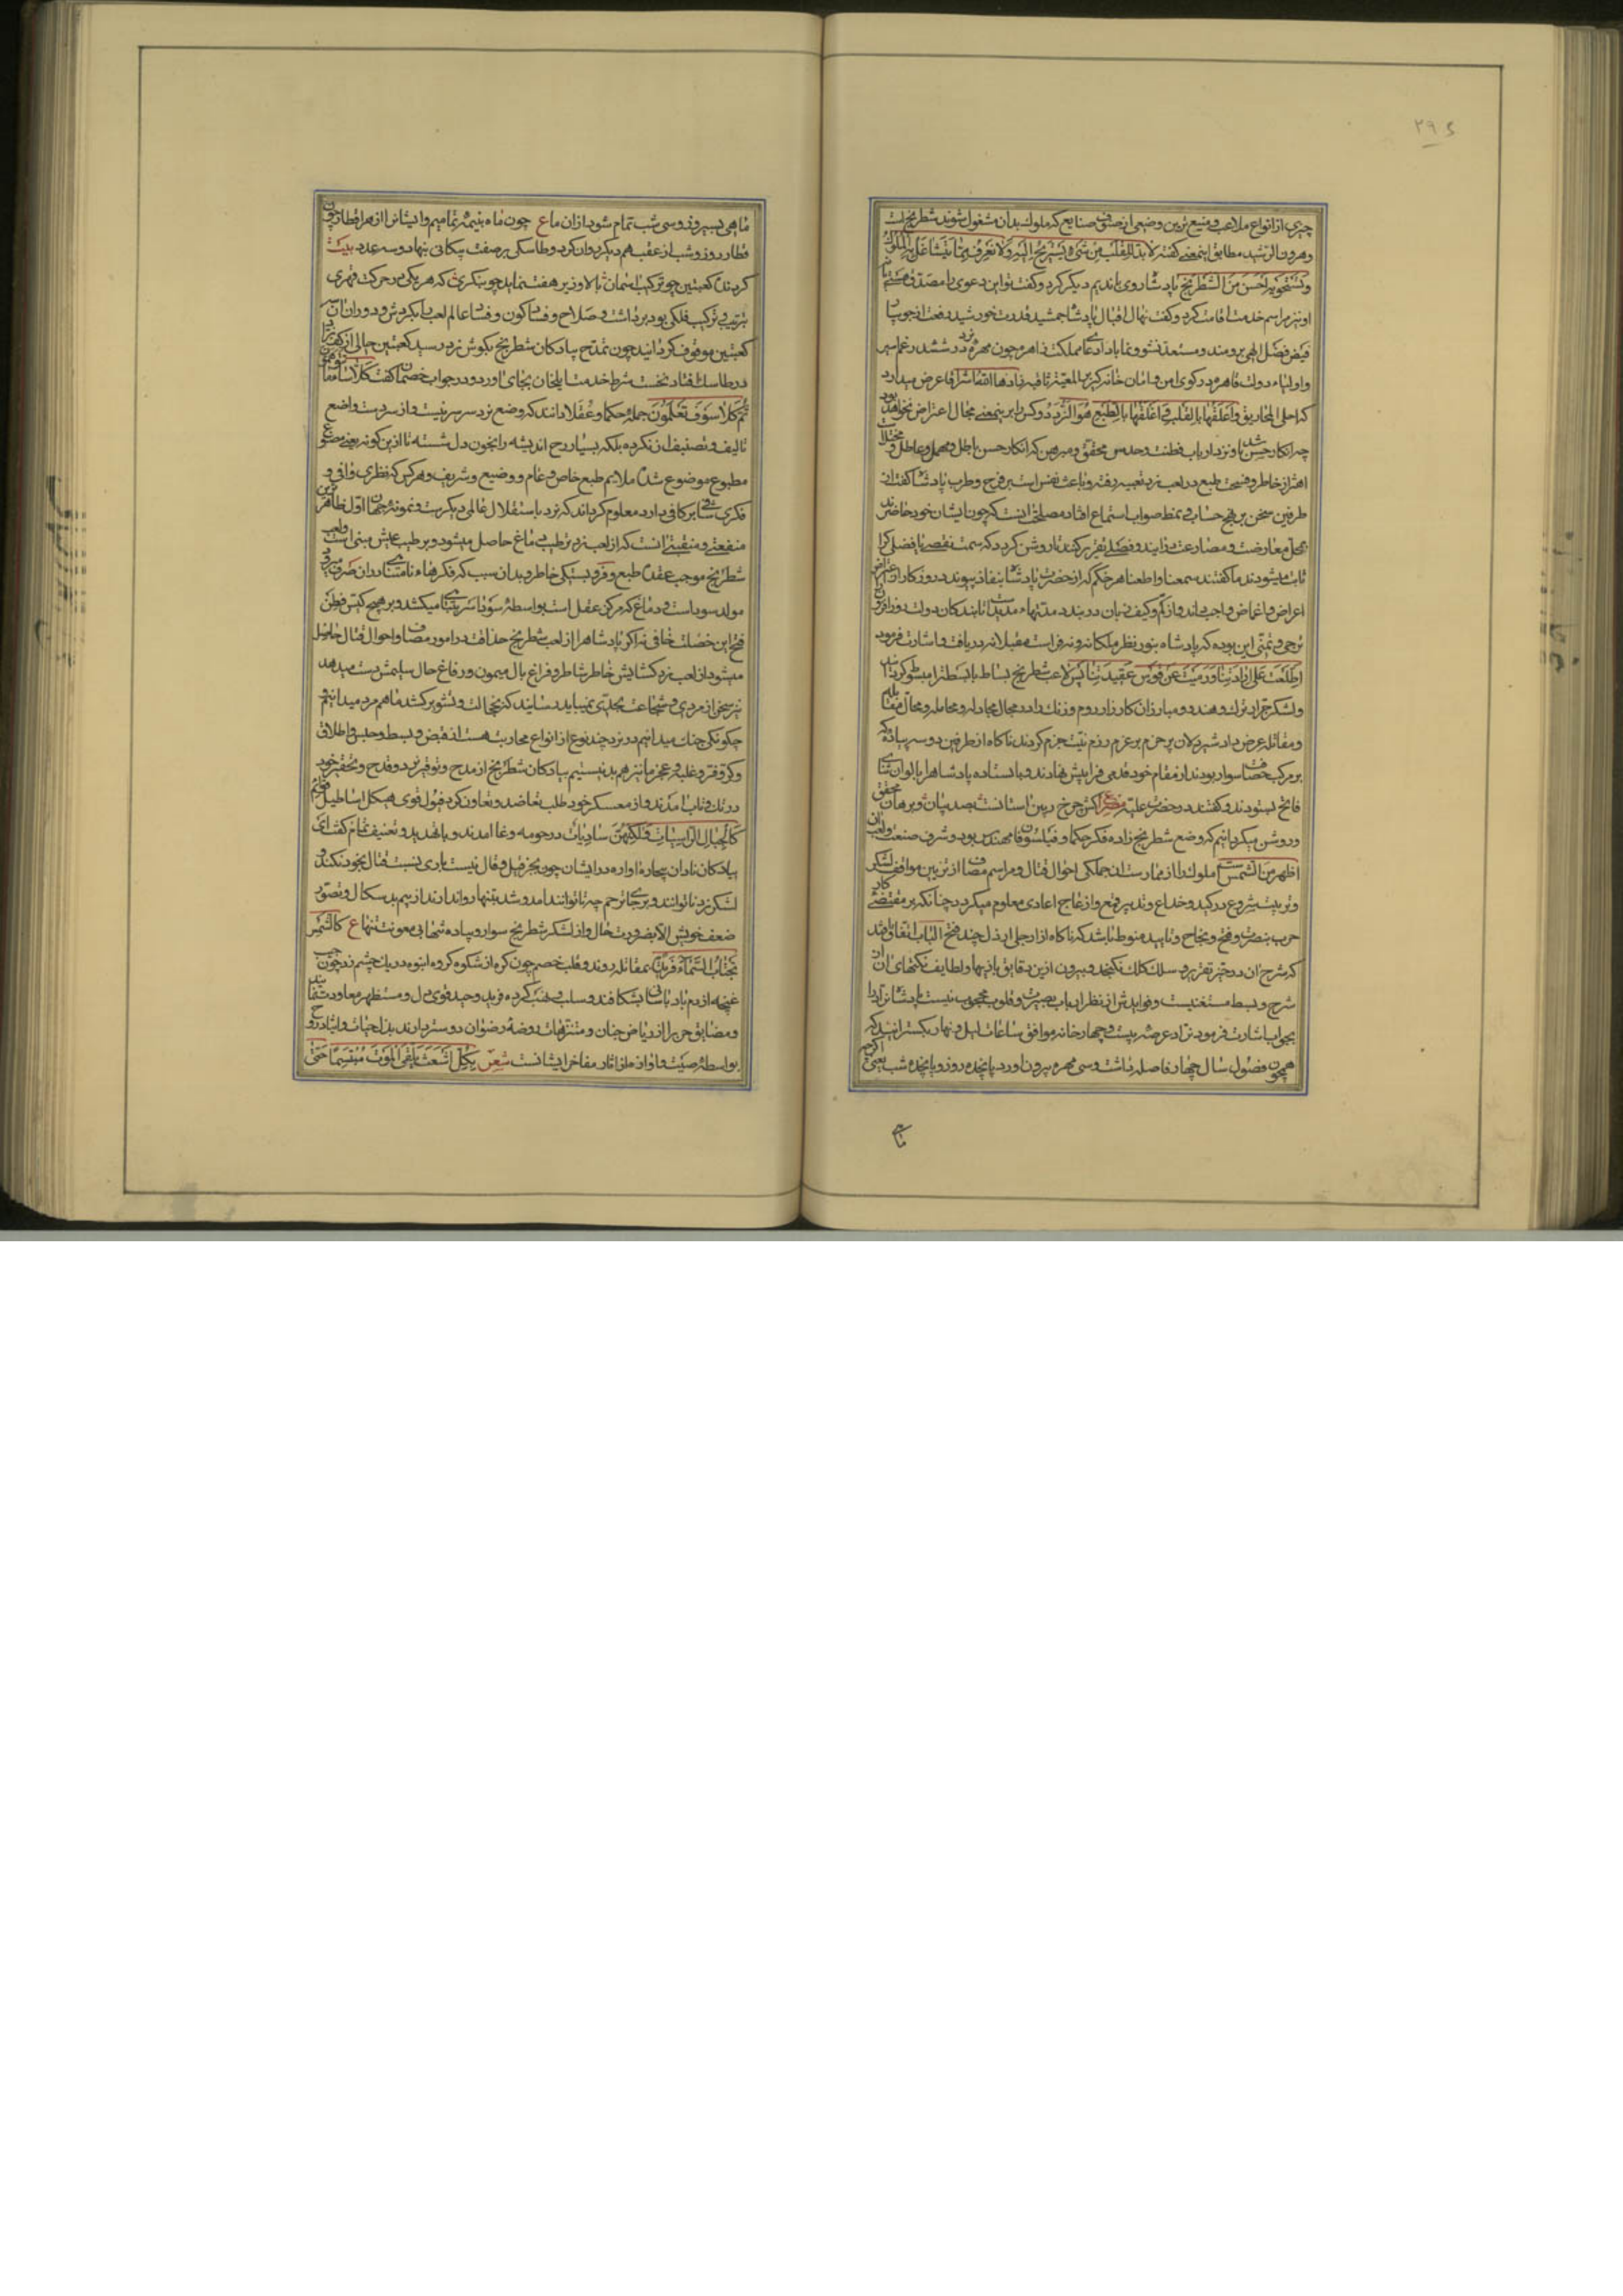 ۲۹۶
چیزی از انواع ملاعب و منیع ترین وضعی از صنوف صنایع که ملوک بدان مشغول شوند شطرنج است
وهرون الرشید مطابق اینمعنی گفته لابد للقلب من شیء یستریح الیه ولا نعرف مما یتشاغل به الملوک
احسن من الشطرنج پادشاه روی با ندیم دیگر کرد و گفت تو این دعوی را مصدق هستی یا نه
او نیز مراسم خدمت اقامت کرد و گفت نهال اقبال پادشاه جمشید قدرت خورشید رفعت از جویبار
فیض فضل الهی برومند و مستعد نشو و نما باد اعادی مملکت قاهره چون مهره نرد در ششدر
واولیاء دولت قاهره در کوی امن و امان خانه گیر
واعلقها بالقلب واغلقها بالطبع هو النرد دو کس را برینمعنی مجال اعتراض نخواهد بود
چه انکار حسن او نزد ارباب فطنت و حدس محقق و مبرهن که انکار حسن باطل و مهمل و عاطل
اهتزاز خاطر و فسحت طبع در لعب نرد تعبیه رفته و باعث نفس است بر فرح و طرب پادشاه گفت از
طرفین سخن بر نهج حساب و نمط صواب استماع افتاد مصلحت آنست که چون ایشان خود حاضرند
ثابت میشود ندما گفتند سمعنا واطعنا هر حکم که از حضرت پادشاه بنفاذ پیوندد روزگار از
اعراض و اغماض واجب داند و از کم و کیف زبان در بندد مدتهاء مدیدست تا بندگان دولت روزافزون
ترجی و تمنی این بوده که پادشاه بنور نظر ملکانه و نه فراست مقبلانه دریافت و اشارت فرمود
اطلعت علی ارادتنا ورمیت عن قوس عقیدتنا پس لاعب شطرنج بساط
ولشکر جرار ترک و هند و مبارزان کارزار روم و زنگ را در مجال مجادله و مجامله و محال مقابله
ومقاتله عرض داد شیردلان پر حزم بر عزم رزم نیت جزم کردند ناگاه از طرفین دو سه پیاده که
بر مرکب خصاف سوار بودند از مقام خود قدمی فراپیش نهادند و باستاده پادشاه را بالوان ثنای
فایح بستودند و گفتند در حضرت علیه مصرع کش چرخ زمین آستانست بصد بیان و برهان محقق
و روشن میگردانیم که وضع شطرنج زاده فکر حکما و فیلسوفان مهندس بود و شرف صنعت ولعب آن
اظهر من الشمس است ملوک را از ممارست آن جملگی احوال قتال و مراسم مصاف از تزیین مواقف لشکر
و ترتیب شروع در کید و خداع و تدبیر قمع و ازعاج اعادی معلوم میگردد چنانکه بر مقتضی کار
حرب بنصرت و فتح و نجاح و تایید منوط باشد که ناگاه از ارجل ارذل چند فتح الباب اتفاق افتد
که شرح آن در حیز تقریر و سلک کلک نگنجد و بیرون ازین دقایق بازیها و لطایف نکتهای آن از
شرح و بسط مستغنیست و فوایدش از نظر ارباب بصیرت و قلوب محجوب نیست پادشاه نراد را
بجواب اشارت فرمود نراد عرصه بیست و چهار خانه موافق ساعات لیل و نهار بگسترانید که
همچون فصول سال چهار فاصله داشت و سی مهره بیرون آورد پانزده روز و پانزده شب یعنی اگر چه
ماهی
ماهی بسی روز و سی شب تمام شود از آن ما ع چون ماه بنیمه تمامیم و ایشانرا از هر اقطار چون
قطار روز و شب از عقب هم دیگر روان کرد و طاسکی بر صفت پیکانی بنهاد و سه عدد بیت
گردنده کعبتین چو ترکیب آسمان بالا و زیر هفت نماید چو بنگری که هر یکی در حرکت قهری
بترتیب و ترکیب فلکی بود برداشت و صلاح و فساد کون و فساد عالم لعب را بگردش و دوران آن
کعبتین موقوف گردانید چون تمدح پیادگان شطرنج بگوش نرد رسید کعبتین حالی از کف نراد
در طاسک افتاد نخست شرط خدمت ایلخان بجای آورد و در جواب خصمان گفت کلا
ثم کلا سوف تعلمون جمله حکما و عقلا دانند که وضع نرد سرسری نیست و از سر دست واضع
تالیف و تصنیف آن نکرده بلکه بسیار رخ اندیشه را بخون دل شسته تا ازین گونه لعبی مصنوع
مطبوع موضوع شده ملایم طبع خاص و عام و وضیع و شریف و هر کس که نظری وافی و
فکری شافی دارد معلوم گرداند که نرد باستقلال عالمی دیگرست و نمونه جهان اول ظاهرترین
منفعتی و منقبتی آنست که از لعب نرد ترطیب دماغ حاصل میشود و بر طیب عیش مبنی است ولعب
شطرنج موجب عقده طبع و فروبستگی خاطر و بدان سبب که فکرهاء نامتناهی در آن صرف میرود
مولد سوداست و دماغ که مرکز عقل است بواسطه سودا سر بتباهی میکشد و بر هیچ کیس فطن
قبح این خصلت خافی نه اگر پادشاه را از لعب شطرنج حذاقت در امور مصاف و احوال قتال حاصل
میشود از لعب نرد گشایش خاطر شاطر و فراغ بال میمون و رفاغ حال سلیمش دست میدهد
نیز سخن از مردی و شجاعت بحدی نمیباید رسانید که بخجالت و تشویر کشد ما هم مرد میدانیم
چگونگی جنگ میدانیم در نرد چند نوع از انواع محاربت هست از قبض و بسط و حبس و اطلاق
وکر و فر و غلبه و عجز ما نیز هم بد نیستیم پیادگان شطرنج از مدح و توقیر نرد و قدح و تحقیر خود
در تک و تاب آمدند و از معسکر خود طلب تعاضد و تعاون کرد فیول قوی هیکل
کالجبال الراسیات ولکنهن سادیات در حومه وغا آمدند و با تهدید و تعنیف تمام گفت ای
پیادگان نادان بیچاره آواره در ایشان چون بجز قیل و قال نیست باری نسبت قتال بخود نکنند و
لشکر نرد ناتوانند و بر جای ترحم چه تا توانند آمد و شد بتنها روا ندارند از بیم بدسگال و تصور
ضعف خویش الا بضرورت حال و از لشکر شطرنج سوار و پیاده شخصا بی معونت تنها ع کالشمس
تجتاب السماء فریدة بمقاتله روند و قلب خصم چون کره از شکوه گروه انبوه در یک چشم زد چون
غنچه از دم باد بآسانی بشکافند و سلب و نهب کرده فرید وحید قوی دل و مستظهر معاودت نمایند
و مضایق حرب را از ریاض جنان و متنزهات روضه رضوان دوستر دارند
بواسطه صیت و آوازه از آثار مفاخر ایشانست شعر بکل اشعث یلقی الموت مبتسما حتی